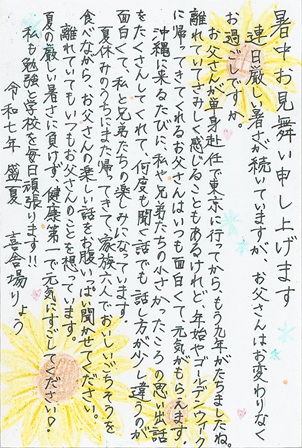 暑中お見舞い申し上げます
連日厳しい暑さが続いていますが、お父さんはお変わりなく
お過ごしですか。
お父さんが単身赴任で東京に行ってから、もう九年がたちましたね。
離れていてさみしく感じることもあるけれど、年始やゴールデンウィーク
に帰ってきてくれるお父さんはいつも面白くて、元気がもらえます。
沖縄に来るたびに、私や兄弟たちの小さかったころの思い出話
をたくさんしてくれて、何度も聞く話でも話し方が少し違うのが
面白くて、私と兄弟たちの楽しみになっています。
夏休みのうちにまた帰ってきて、家族六人でおいしいごちそうを
食べながら、お父さんの楽しい話をお腹いっぱい聞かせてください。
離れていてもいつもお父さんのことを想っています。
夏の厳しい暑さに負けず、健康第一で元気にすごしてください♪
私も勉強と学校を毎日頑張ります!!
令和七年 盛夏 喜舎場りょう